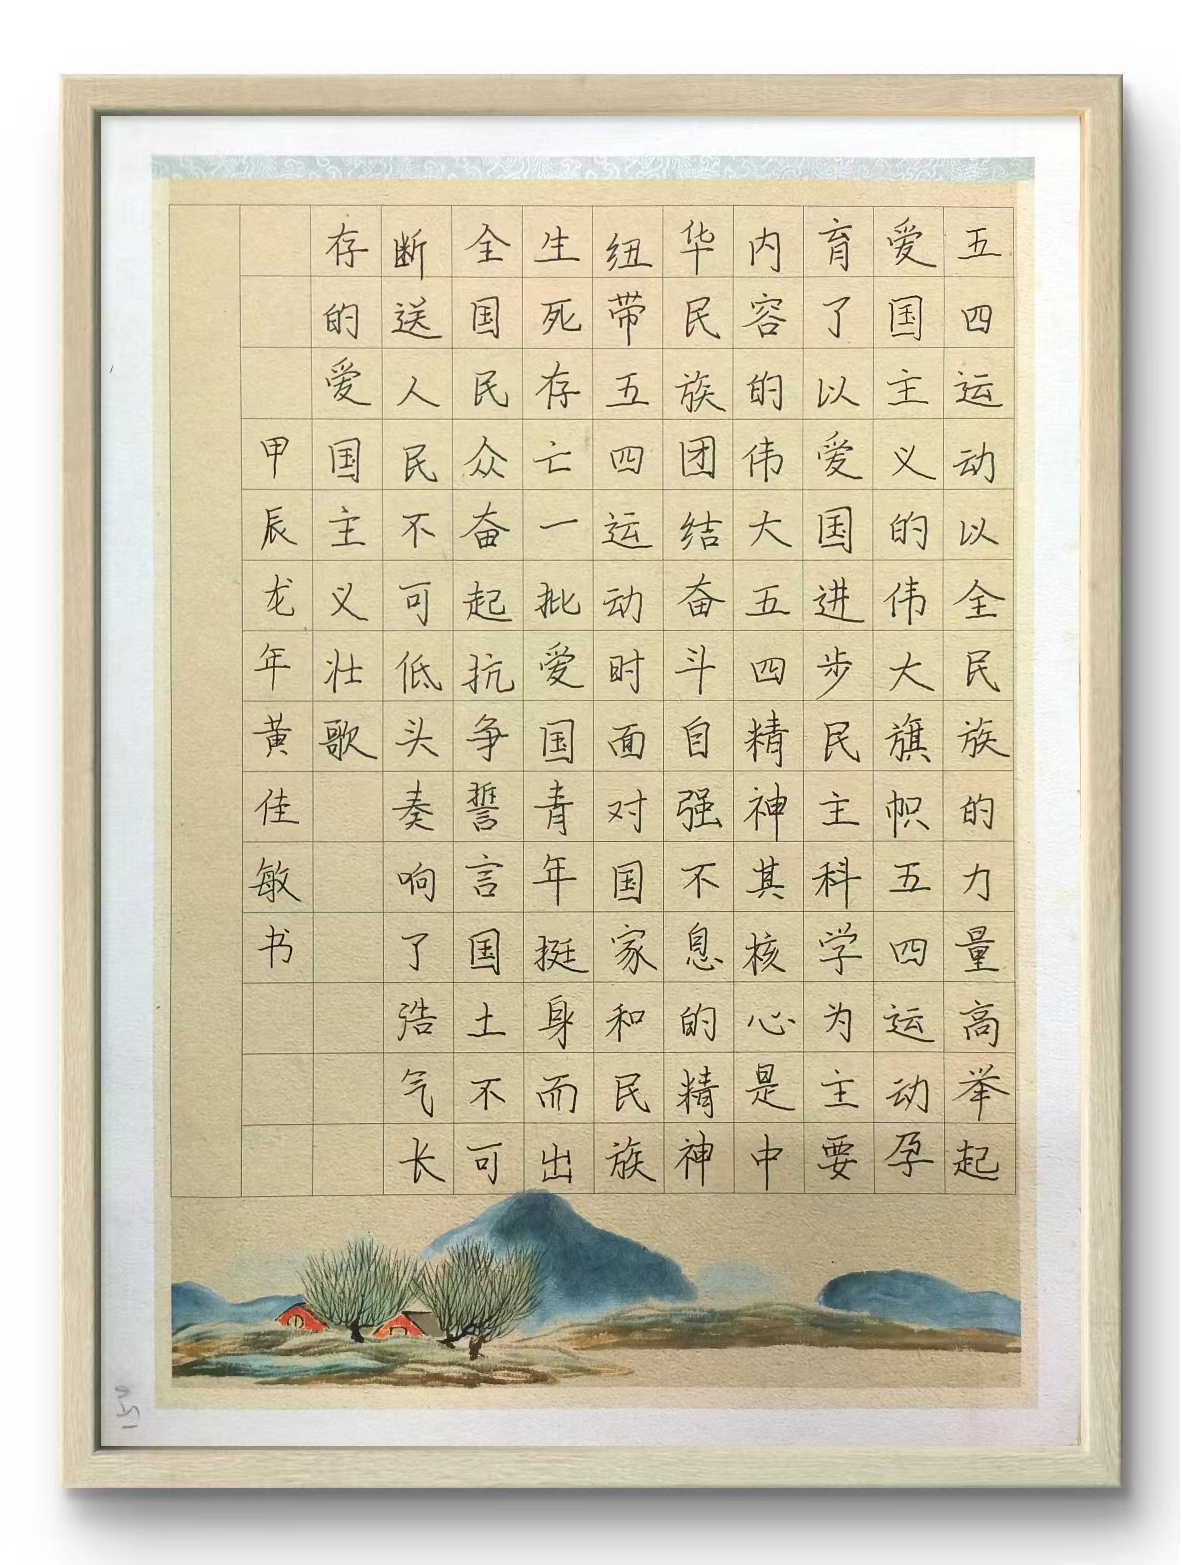 五四运动以全民族的力量高举起
爱国主义的伟大旗帜五四运动孕
育了以爱国进步民主科学为主要
内容的伟大五四精神其核心是中
华民族团结奋斗自强不息的精神
纽带五四运动时面对国家和民族
生死存亡一批爱国青年挺身而出
全国民众奋起抗争誓言国土不可
断送人民不可低头奏响了浩气长
存的爱国主义壮歌
甲辰龙年黄佳敏书